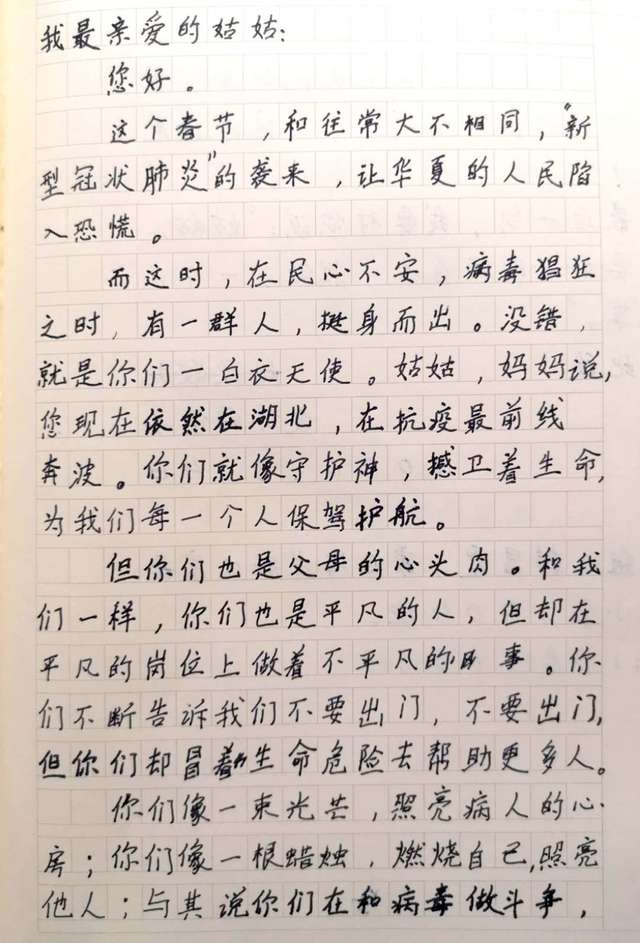 我最亲爱的姑姑:
您好。
这个春节，和往常大不相同，“新
型冠状肺炎”的袭来，让华夏的人民陷
入恐慌。
而这时，在民心不安，病毒猖狂
之时，有一群人，挺身而出。没错，
就是你们一白衣天使。姑姑，妈妈说，
您现在依然在湖北，在抗疫最前线
奔波。你们就像守护神，撼卫着生命，
为我们每一个人保驾护航。
但你们也是父母的心头肉。和我
们一样，你们也是平凡的人，但却在
平凡的岗位上做着不平凡的事。你
们不断告诉我们不要出门，不要出门，
但你们却冒着生命危险去帮助更多人。
你们像一束光芒，照亮病人的心
房；你们像一根蜡烛，燃烧自己，照亮
他人；与其说你们在和病毒做斗争，